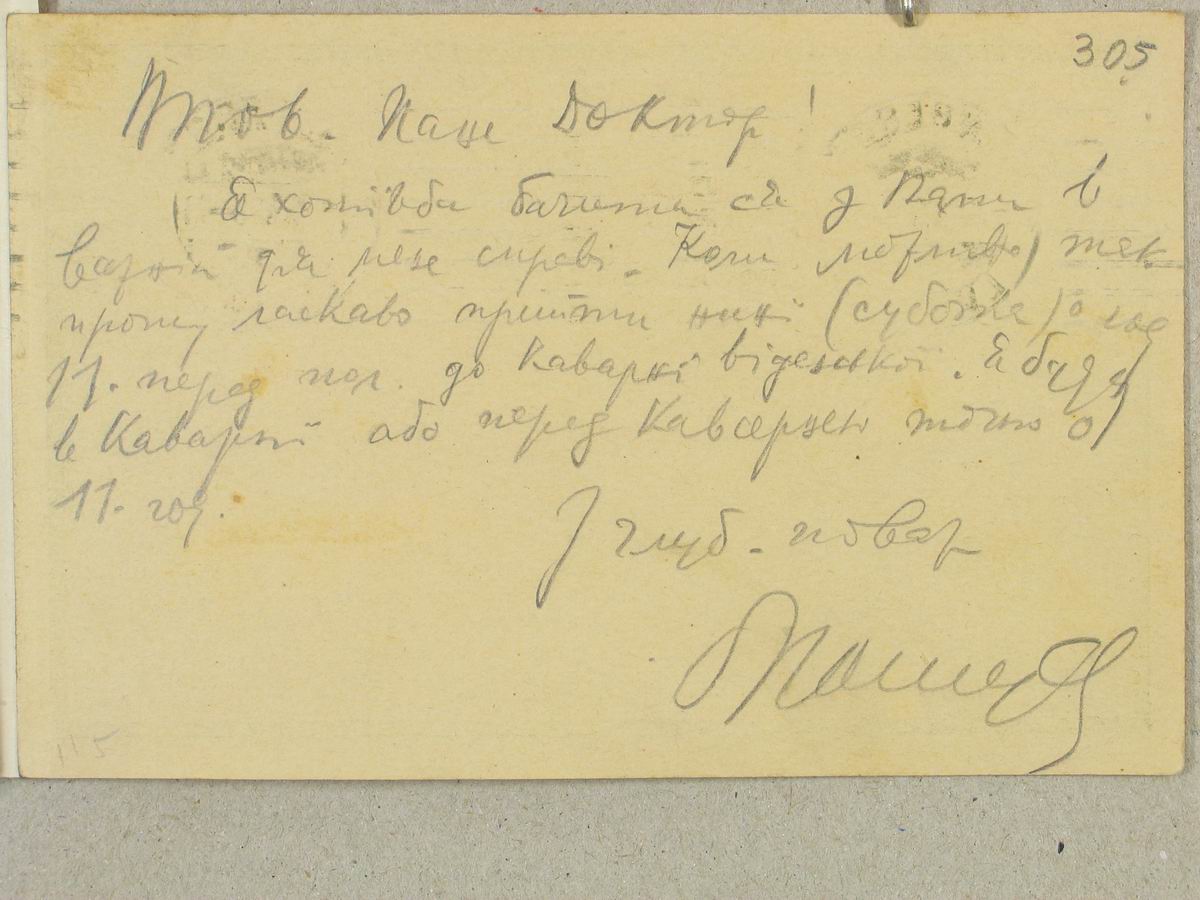 305
Втов. Пане Доктор!
Я хотівби бачити ся з Вами в
важній для мене справі. Коли можливо, так
прошу ласкаво прийти нині (субота) о год
11. перед пол. до Каварні віденської. Я буду
в Каварні або перед Каварнею точно о
11. год.
З глуб. поваж
115